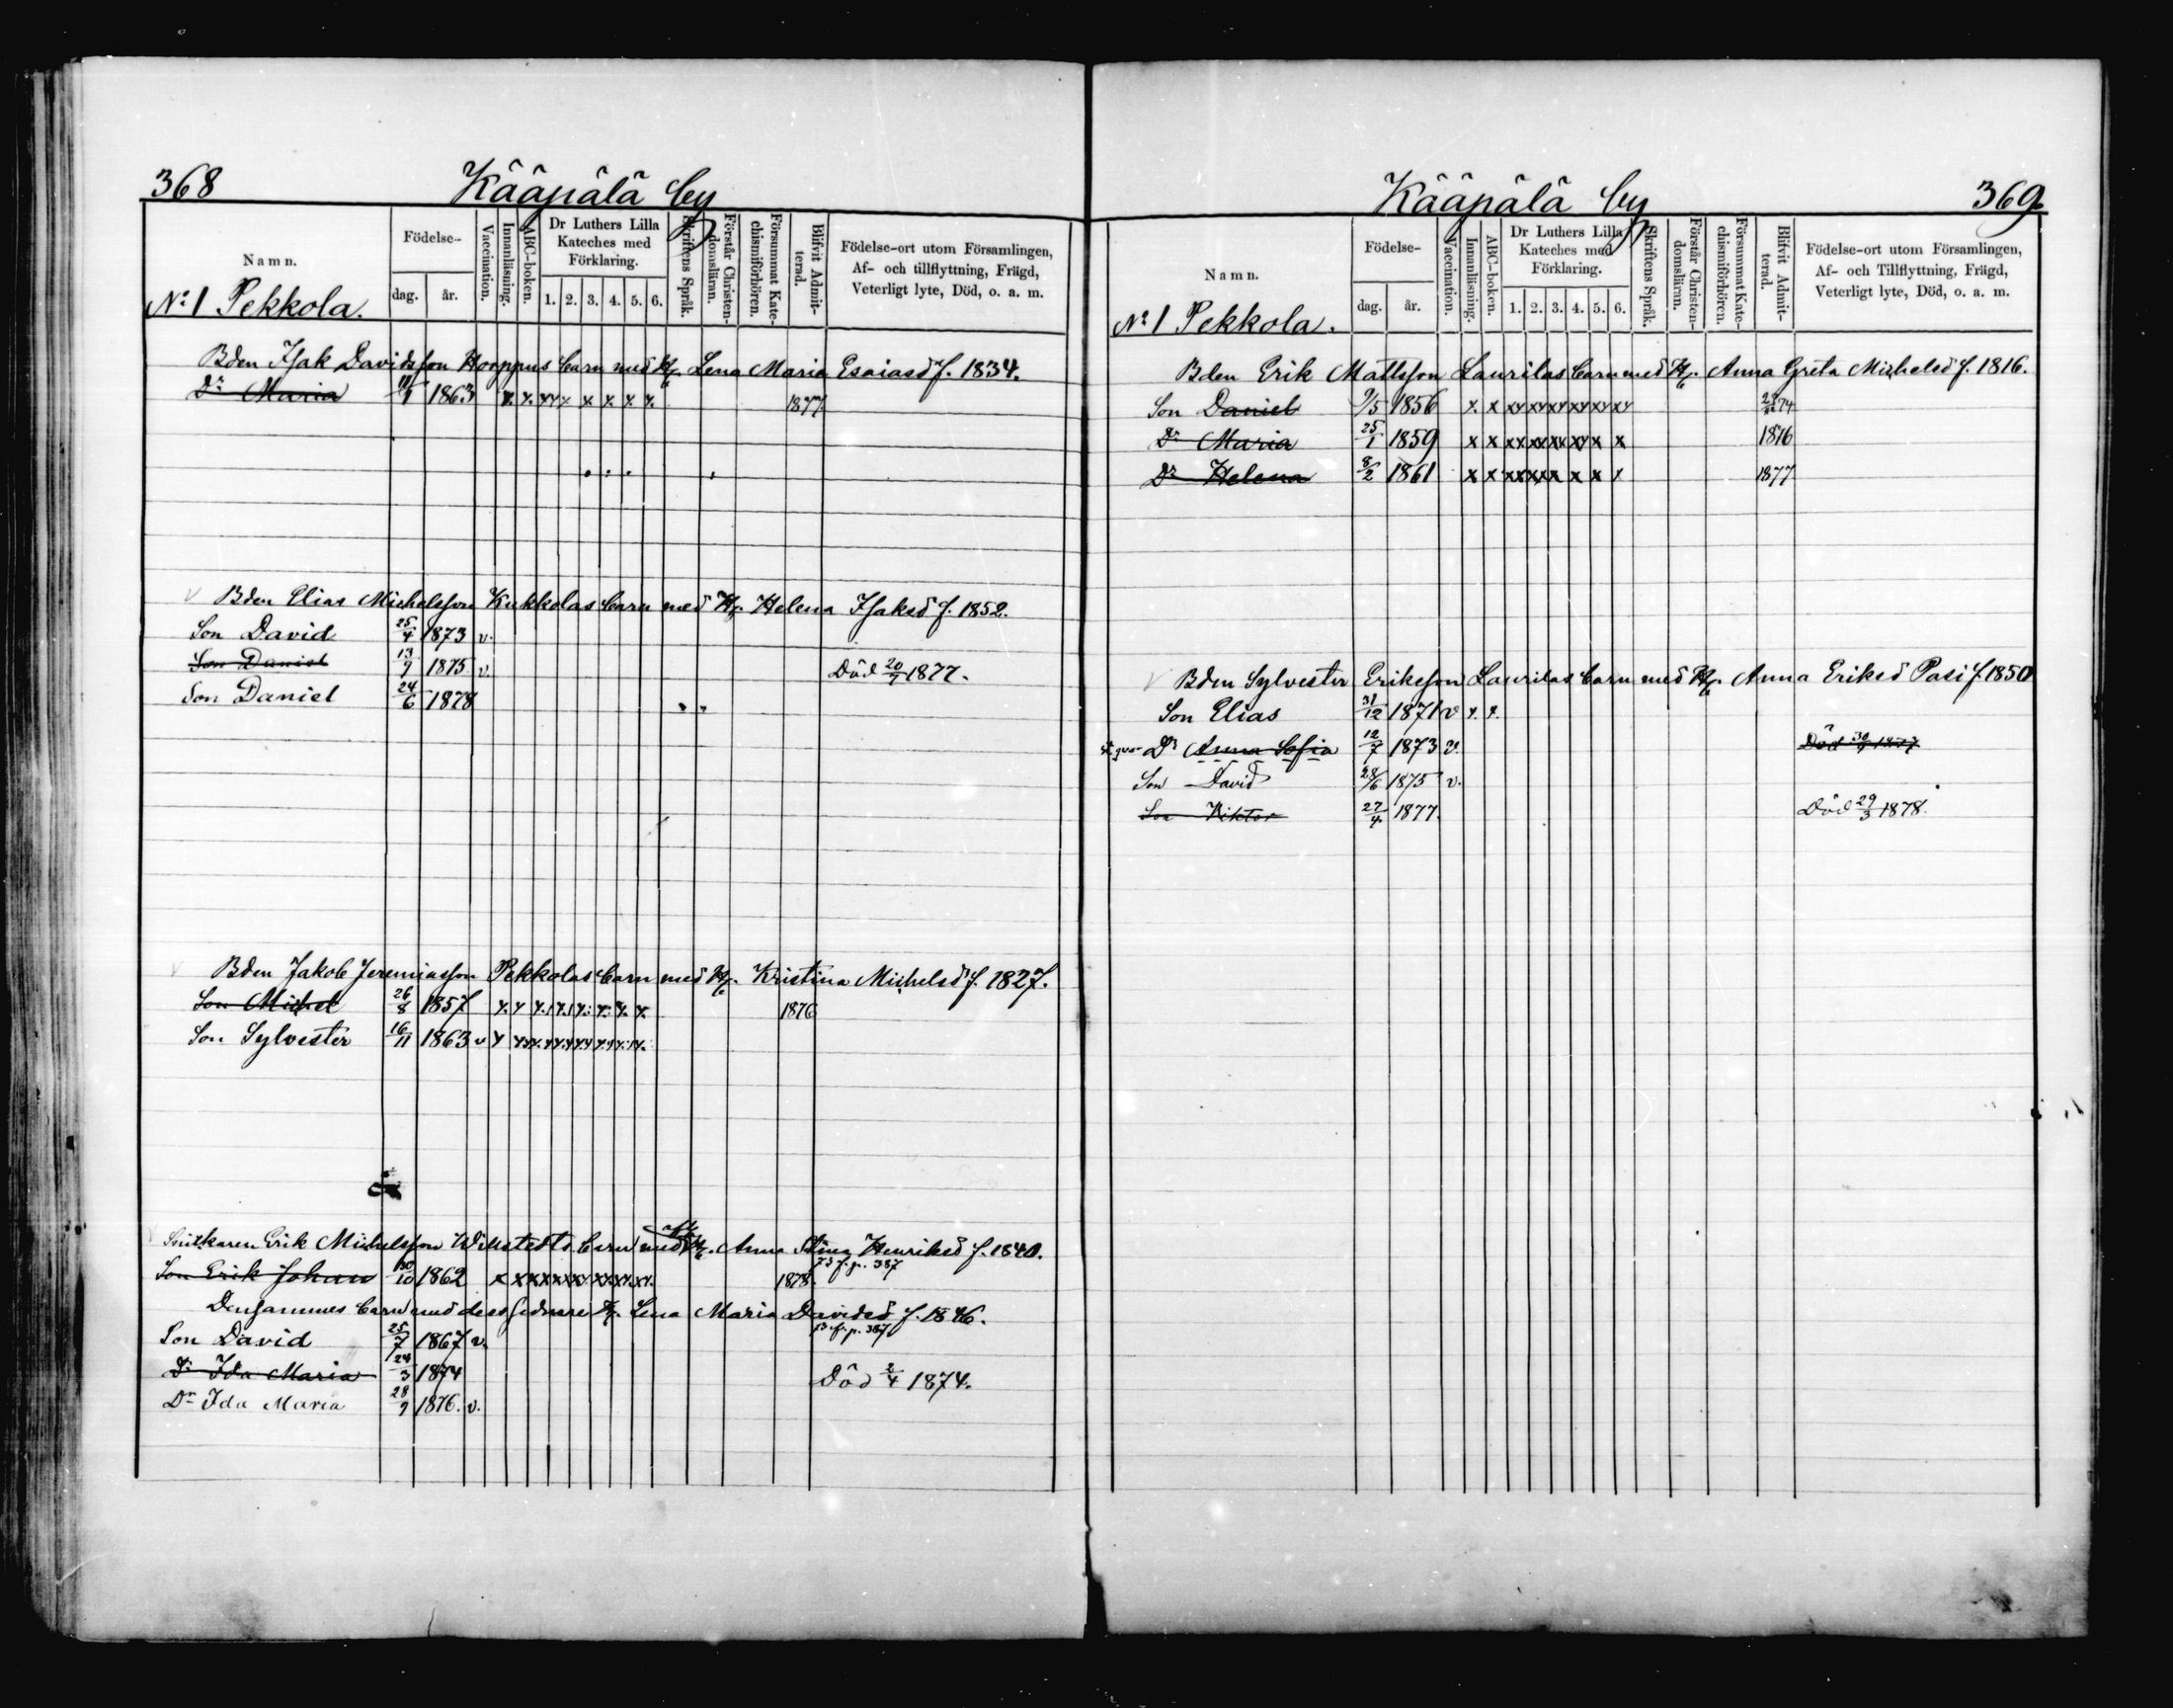 368 Kääpälä by
Namn.
Födelse-
dag. år.
Vaccination.
Innanläsning.
ABC-boken.
Dr Luthers Lilla Kateches med Förklaring.
1. 2. 3. 4. 5. 6.
Skriftens Språk.
Förstår Christendomsläran.
Försummat Katechismiförhören.
Blifvit Admitterad.
Födelse-ort utom Församlingen,
Af- och tillflyttning, Frägd,
Veterligt lyte, Död, o. a. m.
No 1 Pekkola.
Bden Isak Davidsson Hoppus barn med H. Lena Maria Esaiasd f. 1834.
Dr Maria 1863 1877
Bden Elias Michelsson Kukkolas barn med H. Helena Isaksd f. 1852.
Son David 25/4 1873 v.
Son Daniel 13/9 1875 v. Död 20/7 1877.
Son Daniel 24/6 1878
Bden Jakob Jeremiasson Pekkolas barn med H. Kristina Michelsd f. 1827.
Son Michel 26/8 1857 1876
Son Sylvester 16/11 1863 v
Erik Michelsson Willstedts barn med afl. H. Anna Stina Henriksd f. 1840.
f. p. 387
Son Erik Johan 30/10 1862 1878.
Densammes barn med dess sednare H. Lena Maria Davidsd f. 1846.
f. p. 387
Son David 25/7 1867 v.
Dr Ida Maria 24/3 1874 Död 2/4 1874.
Dr Ida Maria 28/9 1876. v.
Kääpälä by 369
Namn.
Födelse-
dag. år.
Vaccination.
Innanläsning.
ABC-boken.
Dr Luthers Lilla Kateches med Förklaring.
1. 2. 3. 4. 5. 6.
Skriftens Språk.
Förstår Christendomsläran.
Försummat Katechismiförhören.
Blifvit Admitterad.
Födelse-ort utom Församlingen,
Af- och Tillflyttning, Frägd,
Veterligt lyte, Död, o. a. m.
No 1 Pekkola.
Bden Erik Mattsson Laurilas barn med H. Anna Greta Michelsd f. 1816.
Son Daniel 9/5 1856 74
Dr Maria 25/1 1859 1876
Dr Helena 8/2 1861 1877
Bden Sylvester Eriksson Laurilas barn med H. Anna Eriksd Pasi f. 1850
Son Elias 31/12 1871 v
Dr Anna Sofia 12/7 1873 v. Död
Son David 28/6 1875 v.
Son Viktor 27/4 1877. Död 29/3 1878.